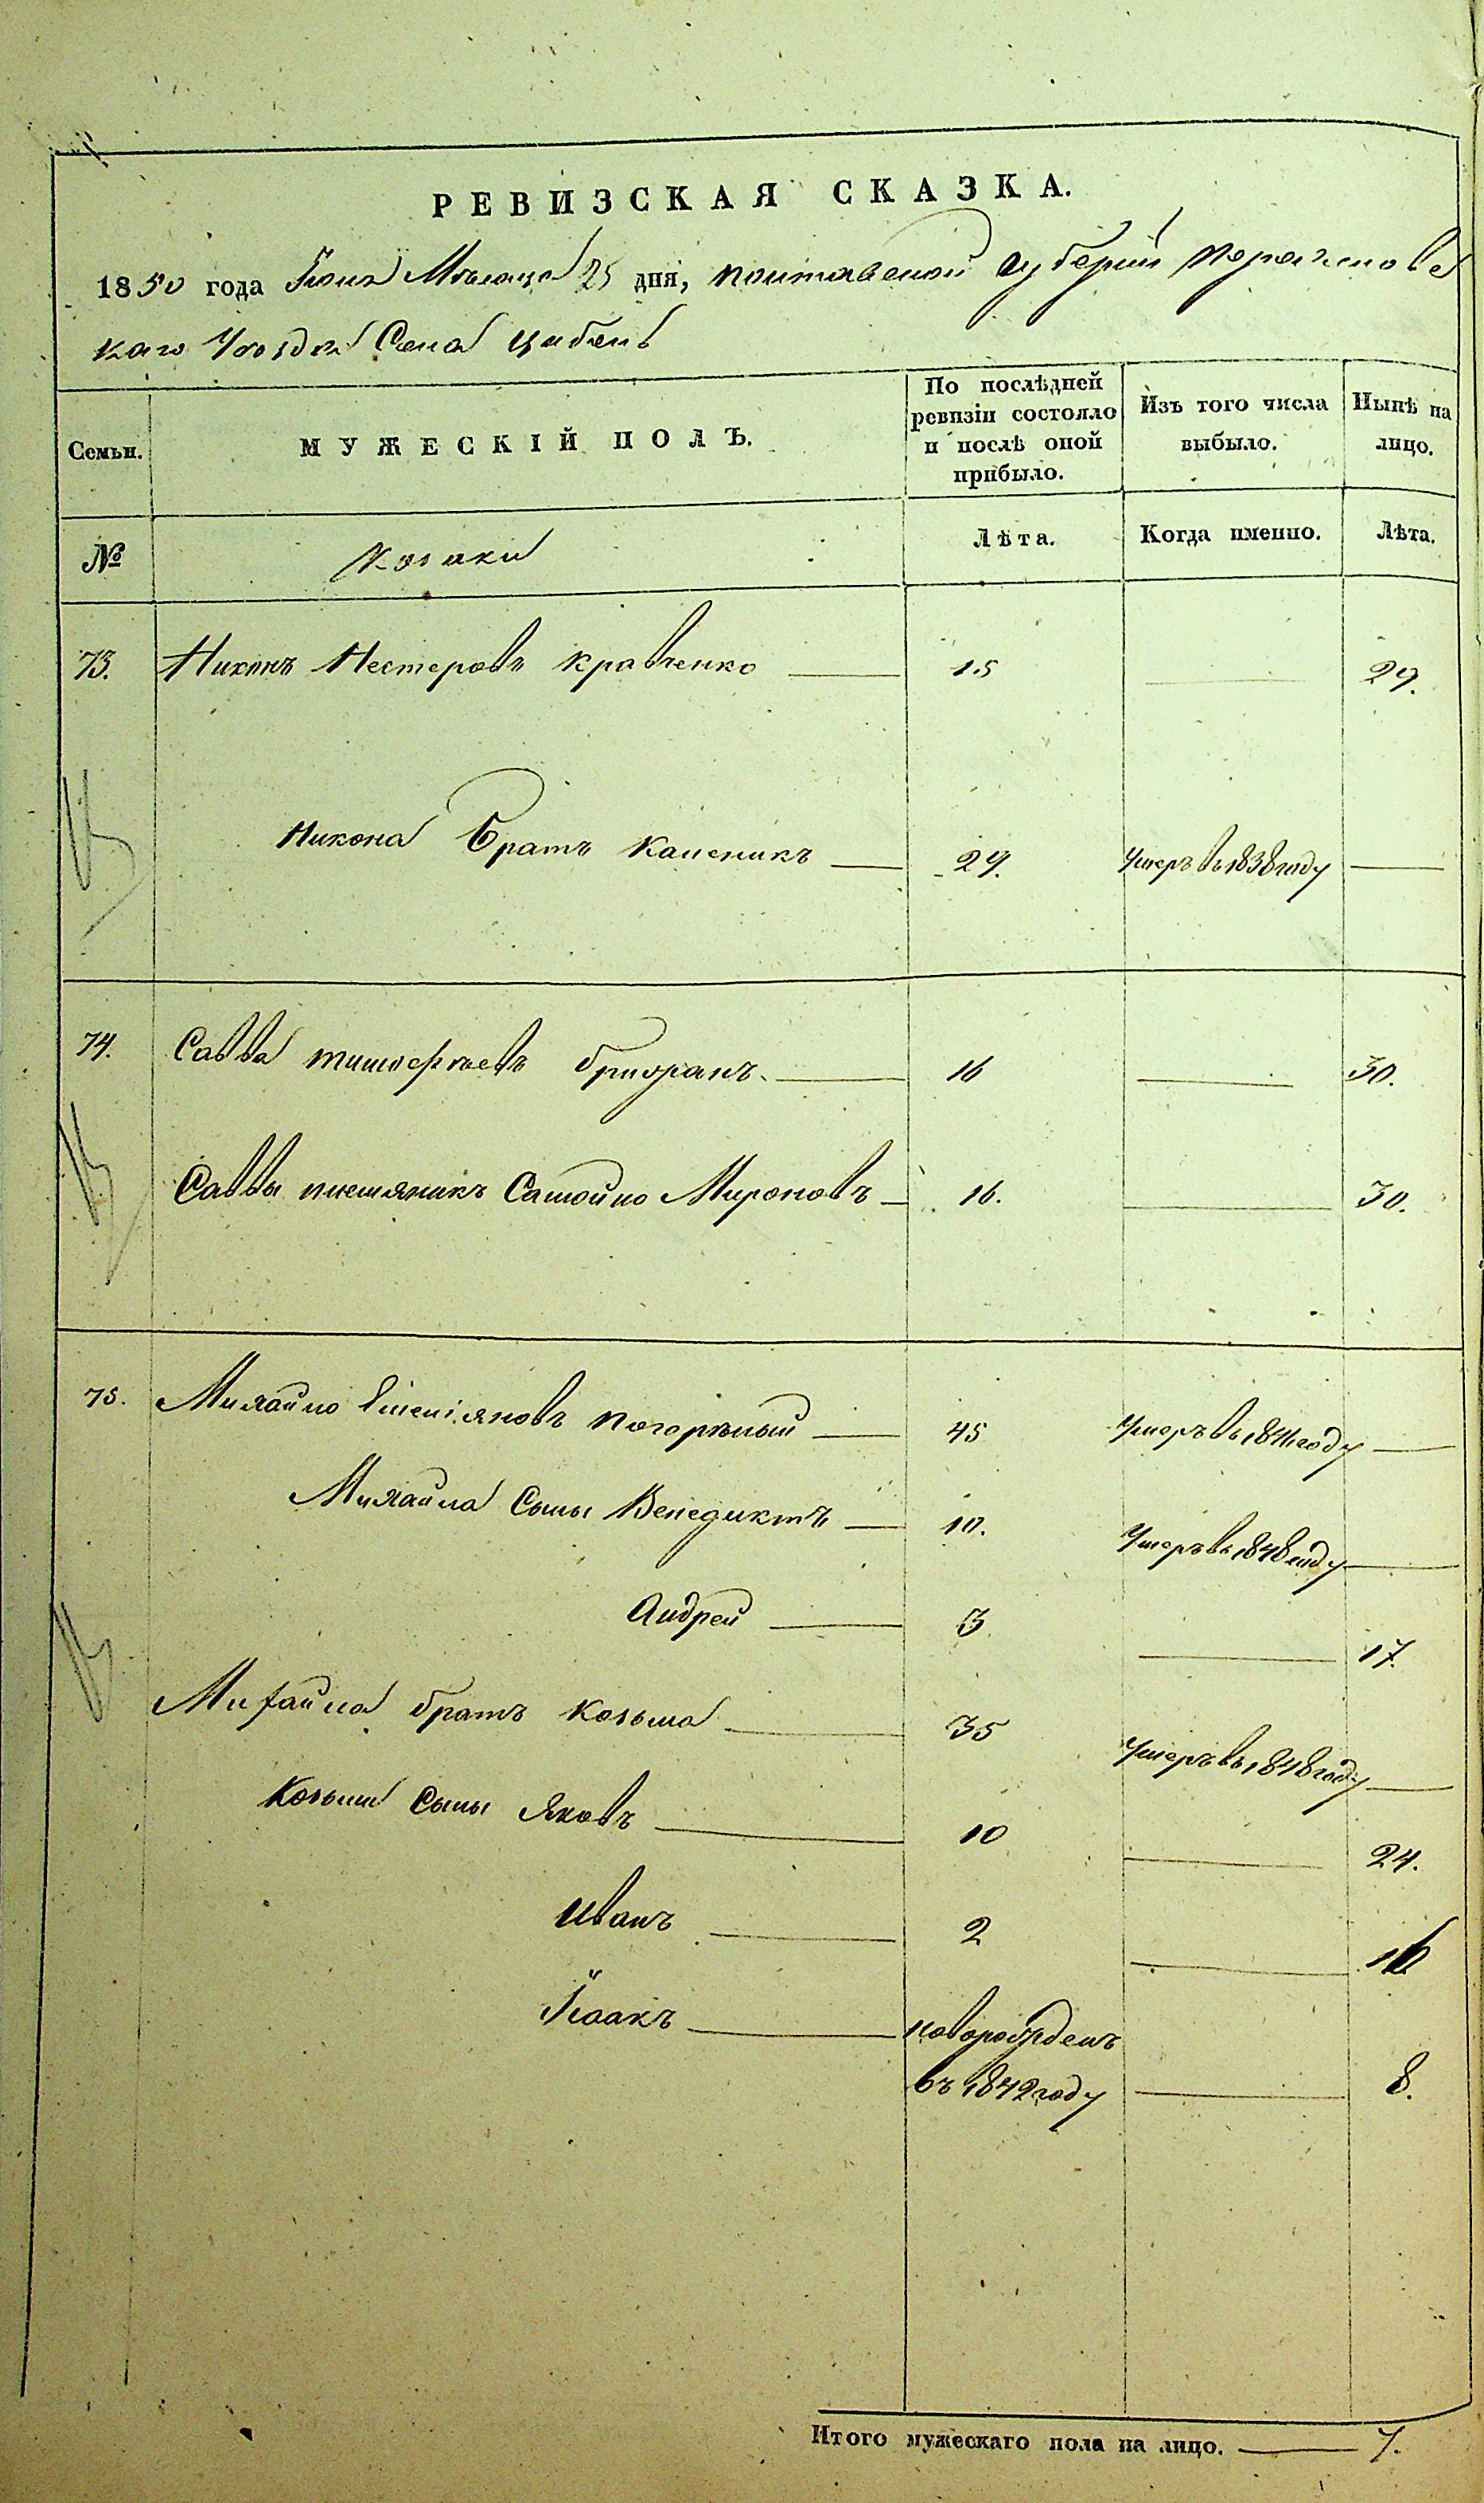 РЕВИЗСКАЯ СКАЗКА.
1850 года Іюня Мѣсяца 25 дня, Полтавской Губерніи Пирятиновс
каго Уѣзда Села
Семьи.
МУЖЕСКІЙ ПОЛЪ.
По послѣдней ревизіи состояло и послѣ оной прибыло.
Изъ того числа выбыло.
Нынѣ на лицо.
№
Козаки
Лѣта.
Когда именно.
Лѣта.
73. Никонъ Нестеровъ Кравченко 15 29.
Никона Братъ Каленикъ 29. Умеръ въ 1838 году
74. Савва Тимофѣевъ 16 30.
Саввы племяникъ Самойло Мироновъ 16. 30.
75. Михайло Емеліяновъ Погорѣлый 45 Умеръ въ 1841 году
Михайла Сыны Венедиктъ 10. Умеръ въ 1848 году
Андрей 3 17.
Михайла братъ Козьма 35 Умеръ въ 1848 году
Козьмы Сыны Яковъ 10 24.
Иванъ 2 16
Ісаакъ новорожденъ
въ 1842 году 8.
Итого мужескаго пола на лицо. 7.